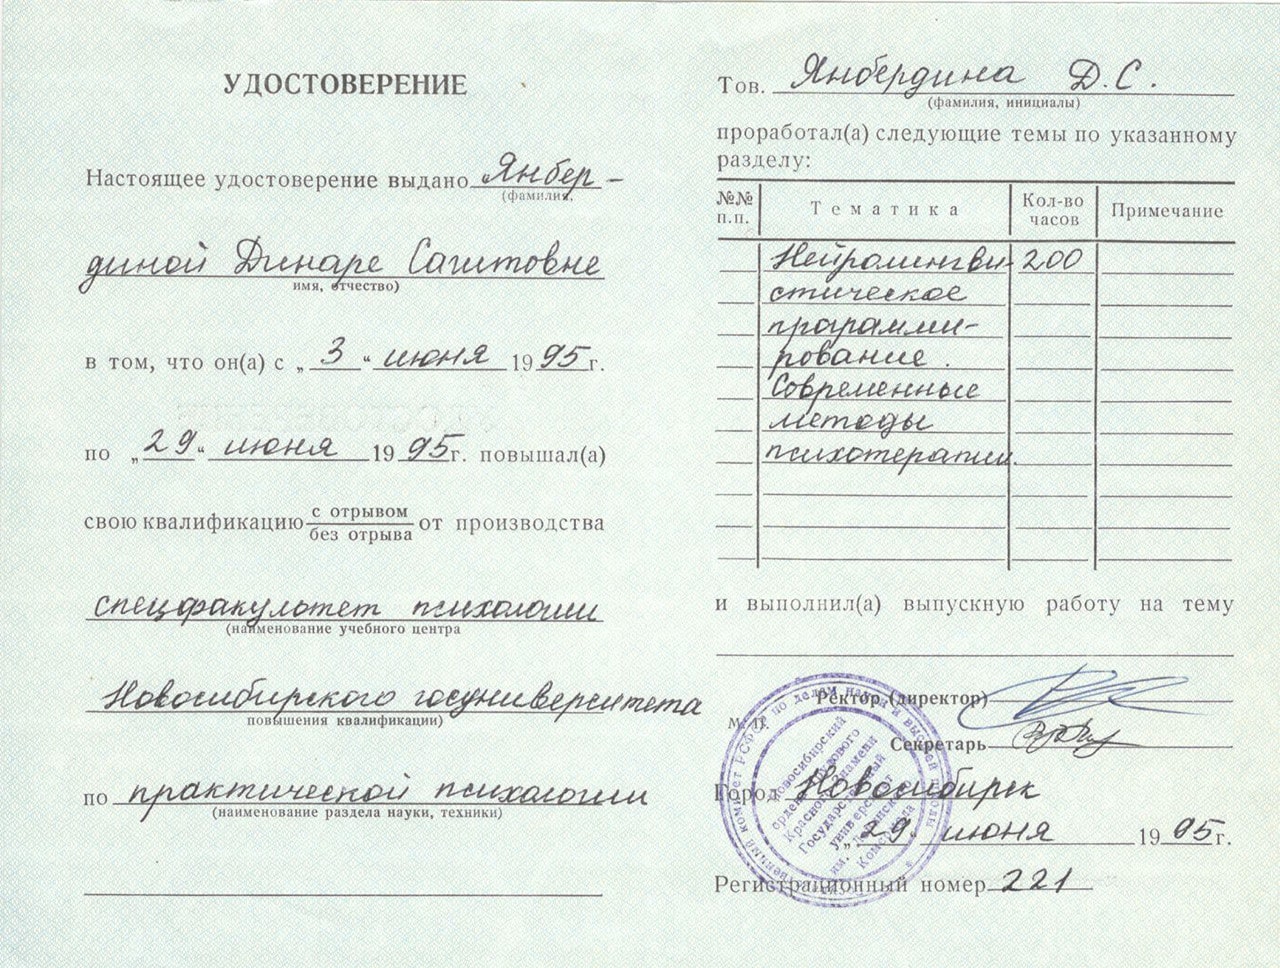 УДОСТОВЕРЕНИЕ
Настоящее удостоверение выдано Янбер-
(фамилия,
диной Динаре Сагитовне
имя, отчество)
в том, что он(а) с „3“ июня 1995г.
по „29“ июня 1995г. повышал(а)
свою квалификацию с отрывом / без отрыва от производства
спецфакультет психологии
(наименование учебного центра
Новосибирского госуниверситета
повышения квалификации)
по практической психологии
(наименование раздела науки, техники)
Тов. Янбердина Д.С.
(фамилия, инициалы)
проработал(а) следующие темы по указанному
разделу:
№№ п.п. Тематика Кол-во часов Примечание
Нейролингви- 200
стическое
программи-
рование.
Современные
методы
психотерапии.
и выполнил(а) выпускную работу на тему
Ректор (директор)
М. П.
Секретарь
Город Новосибирск
„29“ июня 1995г.
Регистрационный номер 221
комитет РСФСР по делам науки и высшей школы
Новосибирский
ордена Трудового
Красного Знамени
Государственный
университет
им. Ленинского
Комсомола